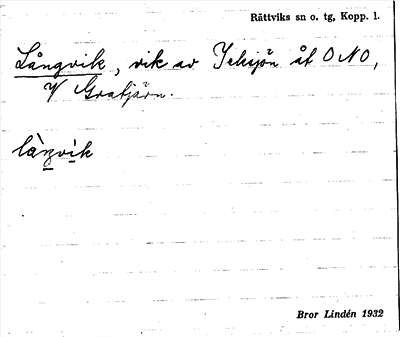 Rättviks sn o. tg, Kopp. l.
Långvik, vik av Jehsjön åt ONO,
V Gratjärn.
làŋvìk
Bror Lindén 1932